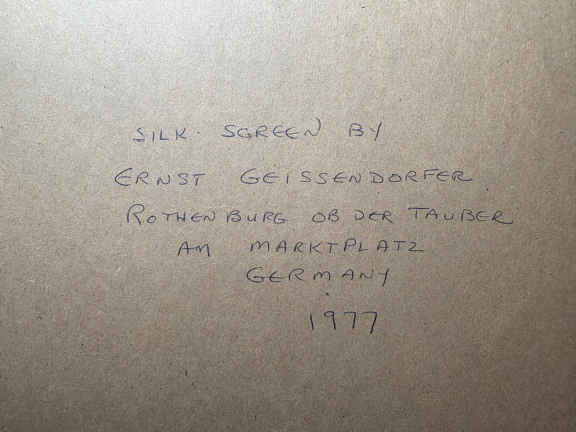 SILK. SGREEN BY
ERNST GEISSENDORFER
ROTHENBURG OB DER TAUBER
AM MARKTPLATZ
GERMANY
1977